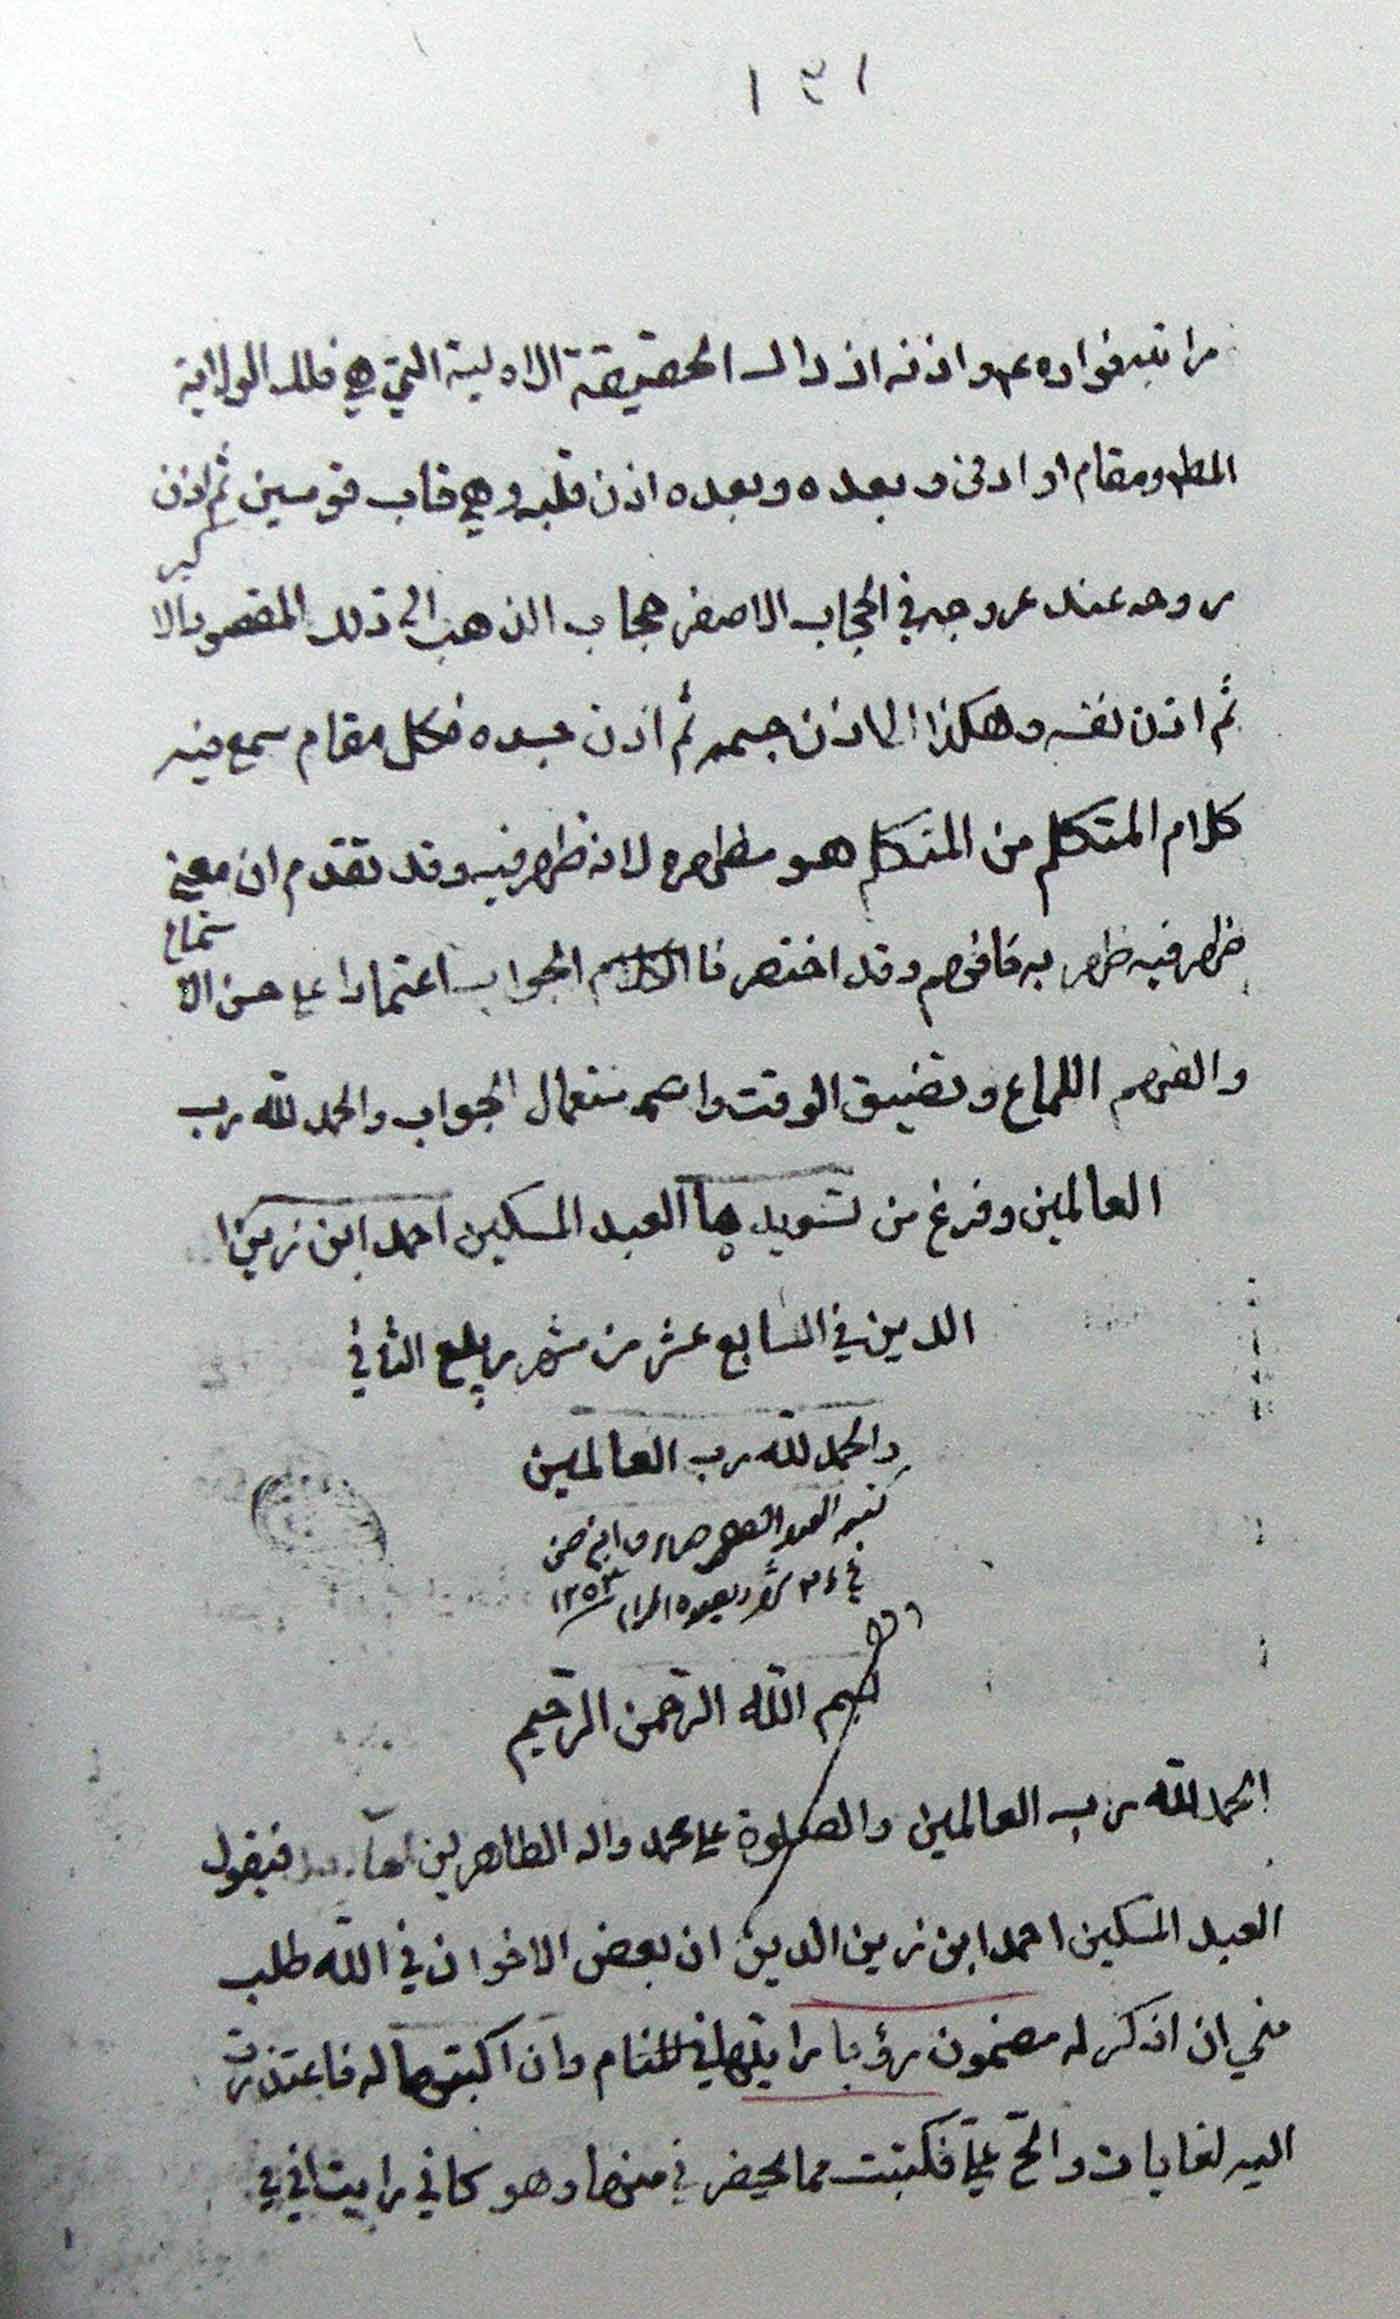 ١٣١
مراتبه فواده ع واذنه اذ ذاك الحقيقة الاولية التي هي فلك الولاية
المطلقة ومقام او ادنى وبعده وبعده اذن قلبه وهي قاب قوسين ثم اذن
روحه عند عروجه في الحجاب الاصفر حجاب الذهب الى ذلك المقصور الا
كبر
ثم اذن نفسه وهكذا الى اذن جسمه ثم اذن جسده فكل مقام سمع فيه
كلام المتكلم من المتكلم هو مظهره لانه ظهر فيه وقد تقدم ان معنى
ظهر فيه ظهر به فافهم وقد اختصرنا الكلام الجواب اعتمادا على حسن الا
ستماع
والفهم اللماع وتضييق الوقت واستعمال الجواب والحمد لله رب
العالمين وفرغ من تسويدها العبد المسكين احمد ابن زين ا
الدين في السابع عشر من شهر ربيع الثاني
والحمد لله رب العالمين
كتبه العبد
في ٢٤ شهر ذيقعدة الحرام ١٢٥٣
بسم الله الرحمن الرحيم
الحمد لله رب العالمين والصلوة على محمد واله الطاهرين اما بعد فيقول
العبد المسكين احمد ابن زين الدين ان بعض الاخوان في الله طلب
مني ان اذكر له مضمون رؤيا رايتها في المنام وان اكتبها له فاعتذرت
اليه لغايات والح علي فكتبت مما يحضرني منها وهو كاني رايت اني في